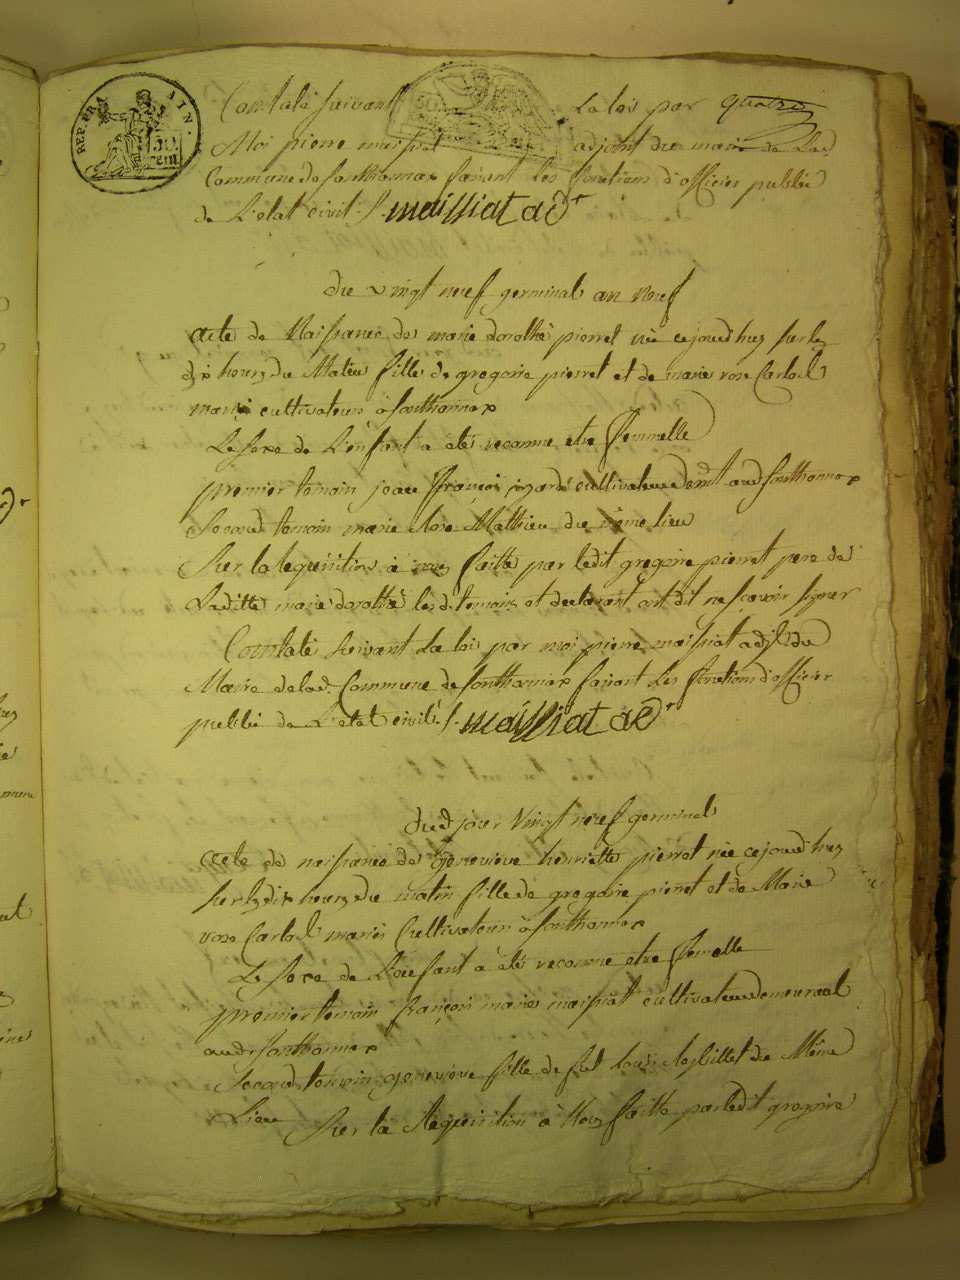 REP. FRA AIN.
50 cent
Constaté suivant La loi par quatre
Moi pierre maissiat adjoint du maire de Lad
Commune de fonthannax faisant les fonctions d'officier public
de L'état civil ./. maissiat adt
du vingt neuf germinal an neuf
acte de Naissance de marie dorothé pierret née cejourd'huy sur les
dix heures du Matin fille de gregoire pierret et de marie rose Carlod
mariés cultivateurs à fonthannax
Le sexe de L'enfant a été reconnu etre femmelle
premier temoin jean françois cultivateur demt aud fonthannax
Second temoin marie Mathieu du même lieu
Sur la requisition à nous faitte par ledit gregoire pierret pere de
Laditte marie dorothé les dt temoins et declarant ont dit ne sçavoir signer
Constaté suivant La loi par moi pierre maissiat adjt du
Maire de lad. Commune de fonthannax faisant Les fonctions d'officier
public de L'état civile ./. maissiat adt
dud jour Vingt neuf germinal
acte de naissance de Geneviève henriette pierret née cejourd'huy
sur les dix heures du matin fille de gregoire pierret et de Marie
rose Carlod mariés Cultivateurs à fonthannax
Le sexe de L'enfant a été reconnu etre femelle
premier temoin françois marie maissiat cultivateur demeurant
aud fonthannax
Second temoin genevieve fille de feu Louis du Même
Lieu Sur la Requisition à Nous faitte par ledit gregoire